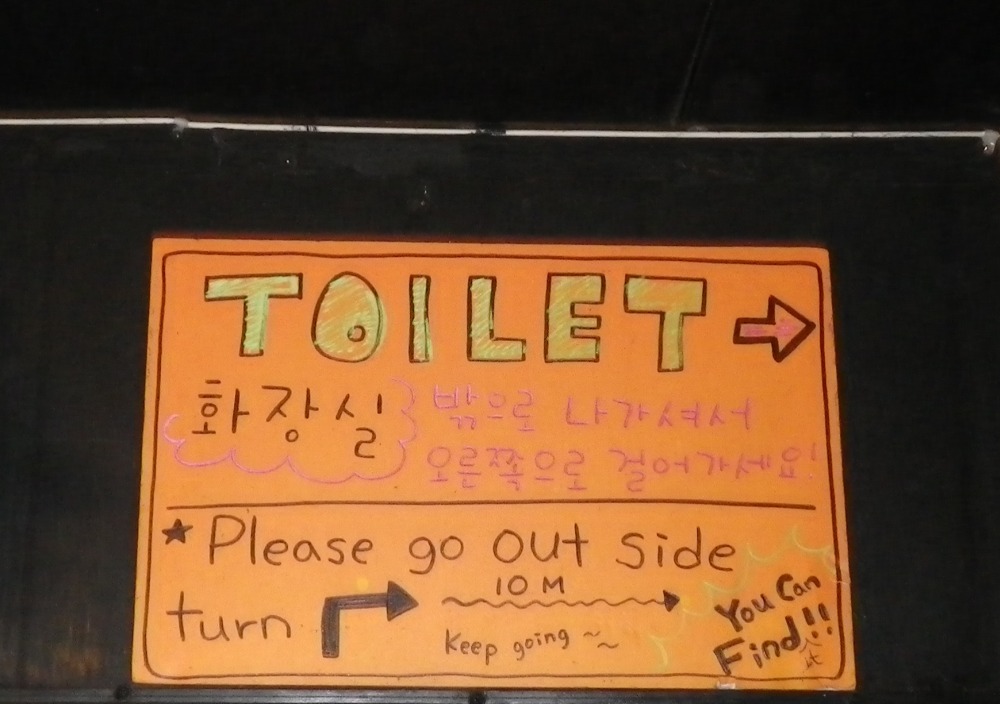 TOILET
화장실 밖으로 나가셔서
오른쪽으로 걸어가세요!
Please go out side
10 M
turn
Keep going ~~
You Can
Find!!